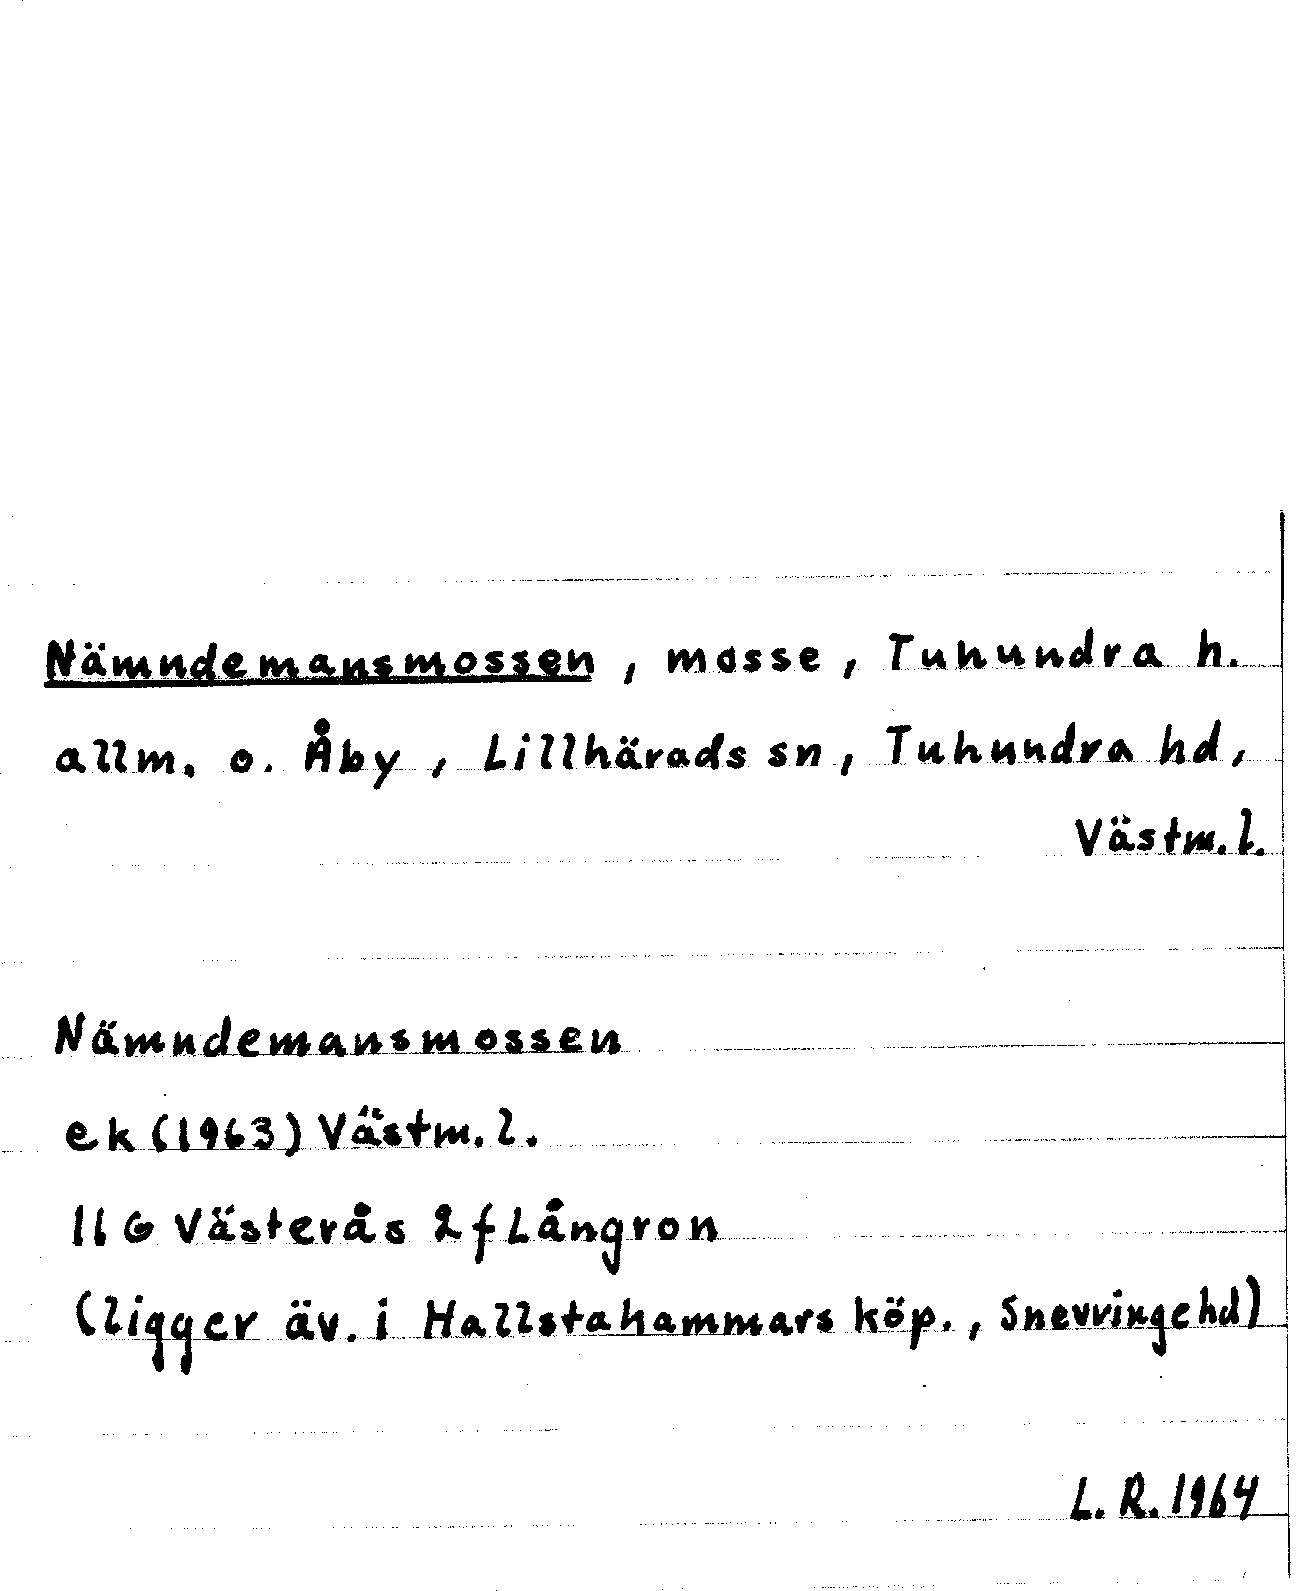 Nämndemansmossen, mosse, Tuhundra h.
allm. o. Åby, Lillhärads sn, Tuhundra hd,
Västm. l.
Nämndemansmossen
ek (1963) Västm. l.
11 G Västerås 2 f Långron
(ligger äv. i Hallstahammars köp., Snevringe hd)
L. R. 1964